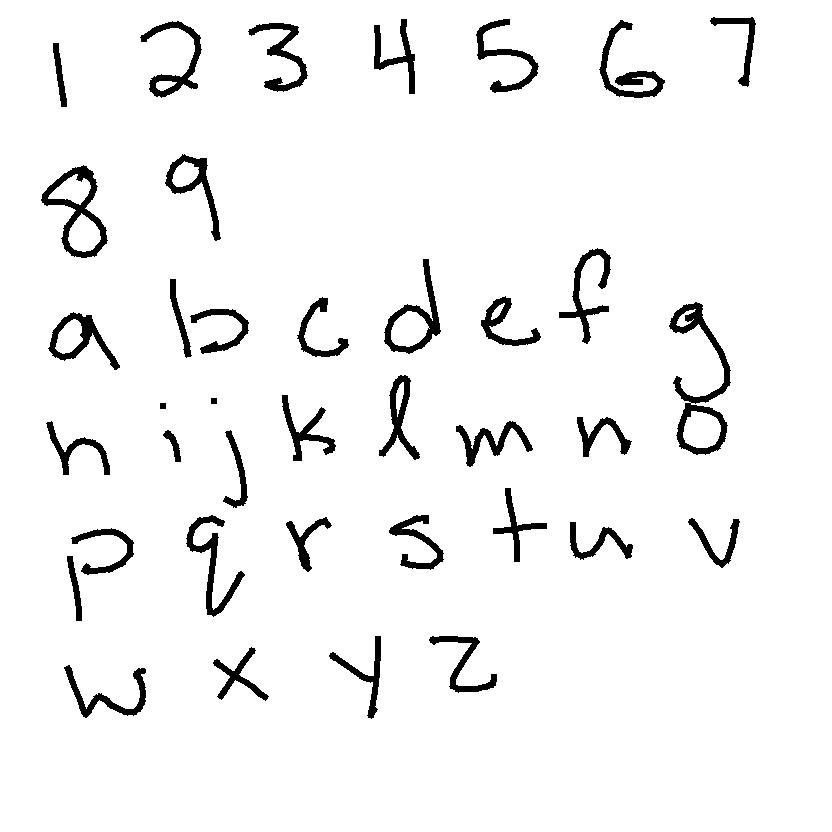 1 2 3 4 5 6 7
8 9
a b c d e f g
h i j k l m n o
p q r s t u v
w x y z